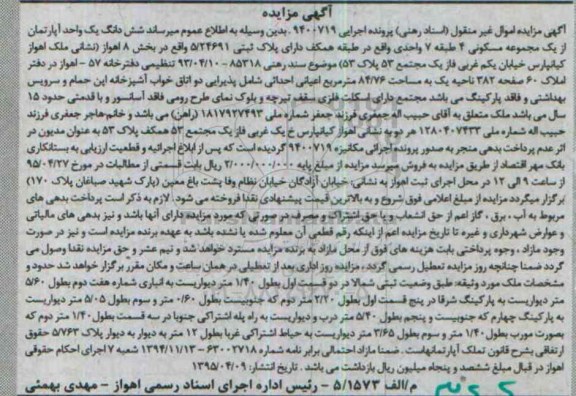 آگهی مزایده
آگهی مزایده اموال غیر منقول (اسناد رهنی) پرونده اجرایی ۹۴۰۰۷۱۹ . بدین وسیله به اطلاع عموم میرساند شش دانگ یک واحد آپارتمان
از یک مجموعه مسکونی ۴ طبقه ۷ واحدی واقع در طبقه همکف دارای پلاک ثبتی ۵/۲۴۶۹۱ واقع در بخش ۸ اهواز (نشانی ملک اهواز
کیانپارس خیابان یکم غربی فاز یک مجتمع ۵۳ پلاک ۵۳) موضوع سند رهنی ۸۵۳۱۸ - ۹۳/۰۴/۱۰ تنظیمی دفترخانه ۵۷ - اهواز در دفتر
املاک ۶۰ صفحه ۳۸۲ ناحیه یک به مساحت ۸۴/۷۶ مترمربع اعیانی احداثی شامل پذیرایی دو اتاق خواب آشپزخانه اپن حمام و سرویس
بهداشتی و فاقد پارکینگ می باشد مجتمع دارای اسکلت فلزی سقف تیرچه و بلوک نمای طرح رومی فاقد آسانسور و با قدمتی حدود ۱۵
سال می باشد ملک متعلق به آقای حبیب اله جعفری فرزند جعفر شماره ملی ۱۸۱۷۹۲۷۴۹۳ (راهن) می باشد و خانم هاجر جعفری فرزند
حبیب اله شماره ملی ۱۲۸۰۴۰۷۴۳۳ هر دو به نشانی اهواز کیانپارس خ یک غربی فاز یک مجتمع ۵۳ همکف پلاک ۵۳ به عنوان مدیون در
اثر عدم پرداخت بدهی منجر به صدور پرونده اجرائی مکانیزه ۹۴۰۰۷۱۹ گردیده است که پس از ابلاغ اجرائیه و قطعیت ارزیابی به بستانکاری
بانک مهر اقتصاد از طریق مزایده به فروش میرسد مزایده از مبلغ پایه ۲/۰۰۰/۰۰۰/۰۰۰ ریال بابت قسمتی از مطالبات در مورخ ۹۵/۰۴/۲۷
از ساعت ۹ الی ۱۲ در محل اجرای ثبت اهواز به نشانی: خیابان آزادگان خیابان نظام وفا پشت باغ معین (پارک شهید صباغان پلاک ۱۷۰)
برگزار میگردد مزایده از مبلغ اعلامی فوق شروع و به بالاترین قیمت پیشنهادی نقدا فروخته می شود. لازم به ذکر است پرداخت بدهی های
مربوط به آب ، برق ، گاز اعم از حق انشعاب و یا حق اشتراک و مصرف در صورتی که مورد مزایده دارای آنها باشد و نیز بدهی های مالیاتی
و عوارض شهرداری و غیره تا تاریخ مزایده اعم از اینکه رقم قطعی آن معلوم شده یا نشده باشد به عهده برنده مزایده است و نیز در صورت
وجود مازاد ، وجوه پرداختی بابت هزینه های فوق از محل مازاد به برنده مزایده مسترد خواهد شد و نیم عشر و حق مزایده نقدا وصول می
گردد ضمنا چنانچه روز مزایده تعطیل رسمی گردد ، مزایده روز اداری بعد از تعطیلی در همان ساعت و مکان مقرر برگزار خواهد شد حدود و
مشخصات ملک مورد وثیقه: طبق وضعیت ثبتی شمالا در دو قسمت اول بطول ۱/۴۰ متر دیواریست به انباری شماره هفت دوم بطول ۵/۶۰
متر دیواریست به پارکینگ شرقا در پنج قسمت اول بطول ۲/۲۰ متر دوم که جنوبیست بطول ۰/۶۰ متر و سوم بطول ۵/۰۵ متر دیواریست
به پارکینگ چهارم که جنوبیست و پنجم بطول ۵/۴۰ متر درب و دیواریست به راه پله اشتراکی جنوبا در سه قسمت بطول ۱/۴۰ متر دوم که
بصورت مورب بطول ۱/۴۰ متر و سوم بطول ۳/۶۵ متر دیواریست به حیاط اشتراکی غربا بطول ۱۲ متر به دیوار به دیوار پلاک ۵/۷۶۳ حقوق
ارتفاقی بشرح قانون تملک آپارتمانهاست . ضمنا مازاد احتمالی برابر نامه شماره ۶۳۰۰۲۷۱۸ - ۱۳۹۴/۱۱/۱۳ شعبه ۷ اجرای احکام حقوقی
اهواز در قبال مبلغ ششصد و پنجاه میلیون ریال بازداشت می باشد . تاریخ انتشار: ۱۳۹۵/۰۴/۰۹
م/الف ۵/۱۵۷۳ - رئیس اداره اجرای اسناد رسمی اهواز - مهدی بهمئی